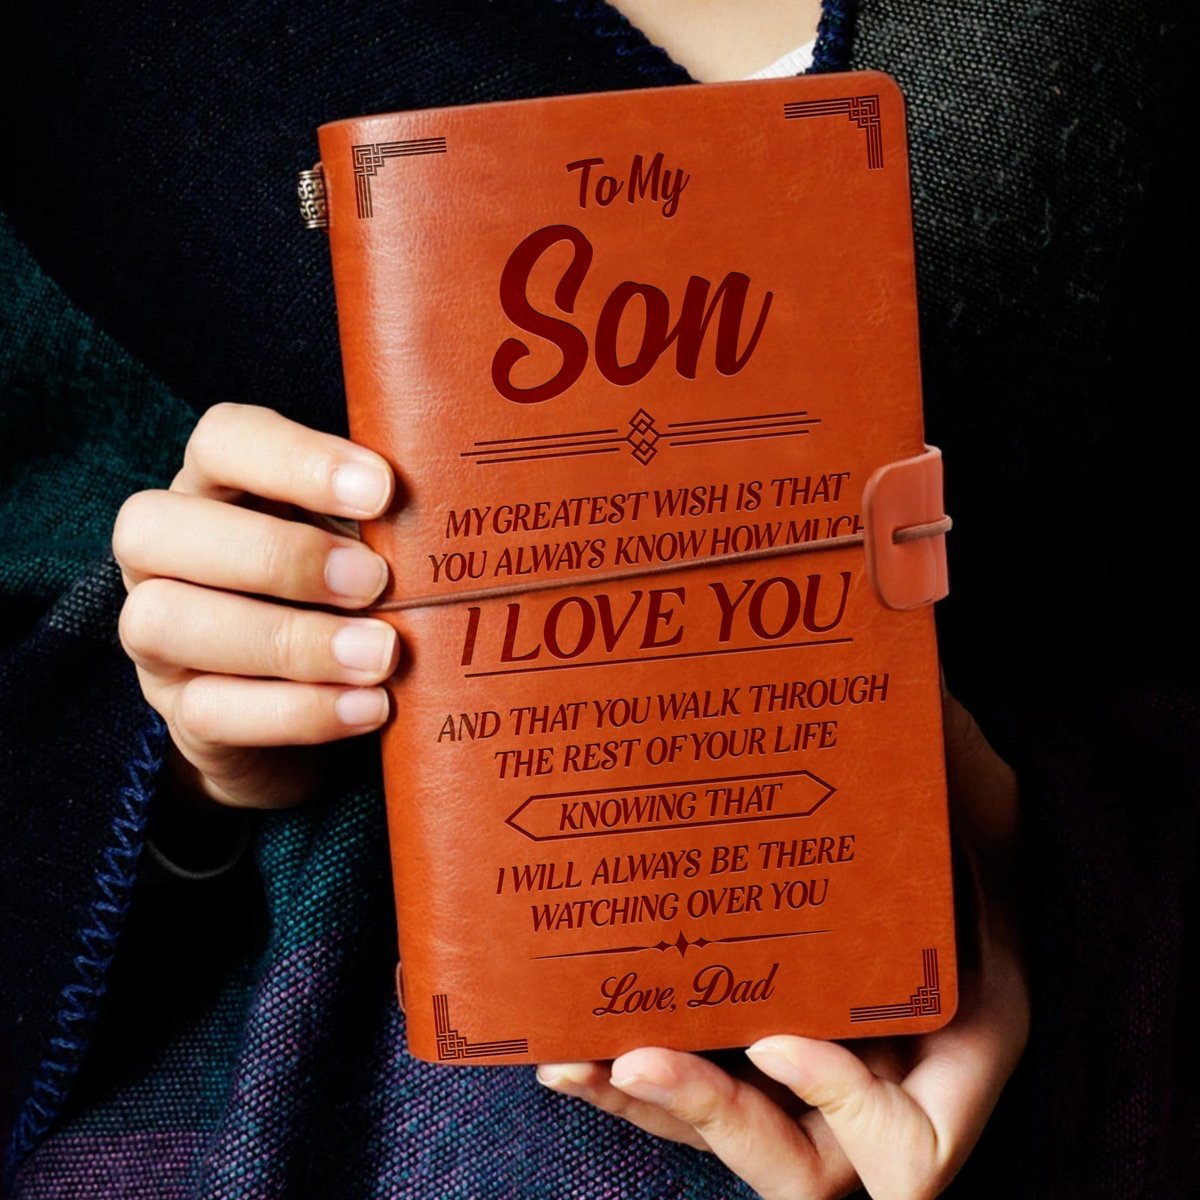 To My
Son
MY GREATEST WISH IS THAT
YOU ALWAYS KNOW HOW MUCH
I LOVE YOU
AND THAT YOU WALK THROUGH
THE REST OF YOUR LIFE
KNOWING THAT
I WILL ALWAYS BE THERE
WATCHING OVER YOU
Love, Dad